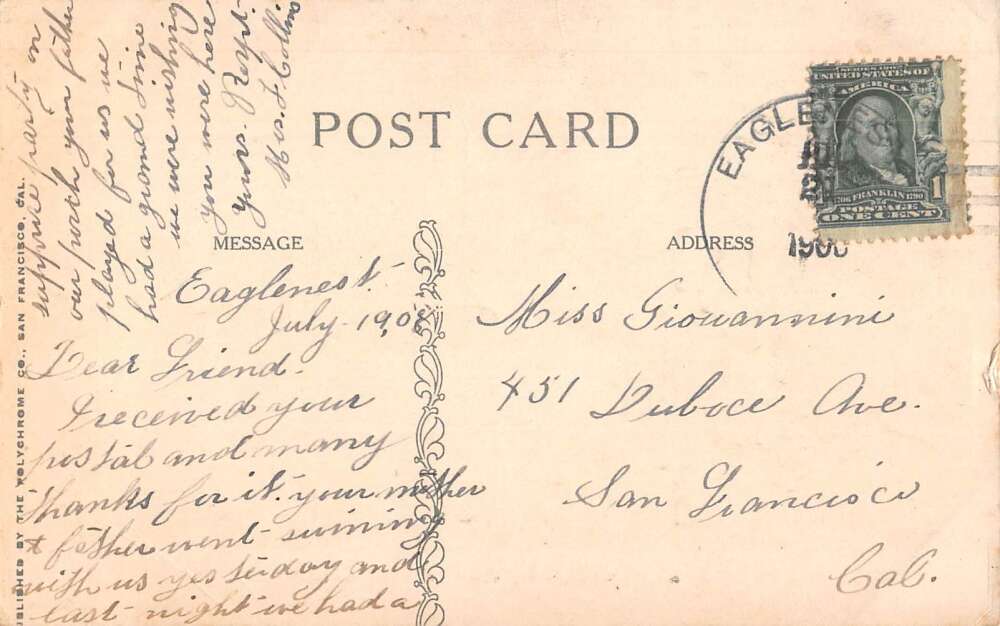 POST CARD
MESSAGE
ADDRESS
EAGLE
190
SERIES 1902
UNITED STATES OF
AMERICA
1706 FRANKLIN 1790
1
POSTAGE
ONE CENT
PUBLISHED BY THE POLYCHROME CO., SAN FRANCISCO, CAL.
Eaglenest
July 1908
Dear Friend.
I received your
postal and many
thanks for it. your mother
& father went swiming
with us yesterday and
last night we had a
supprise party on
our porch your father
played for us we
had a grand time
we were wishing
you were here
yours. Respt.
Collins
Miss Giovannini
451 Duboce Ave.
San Francisco
Cal.